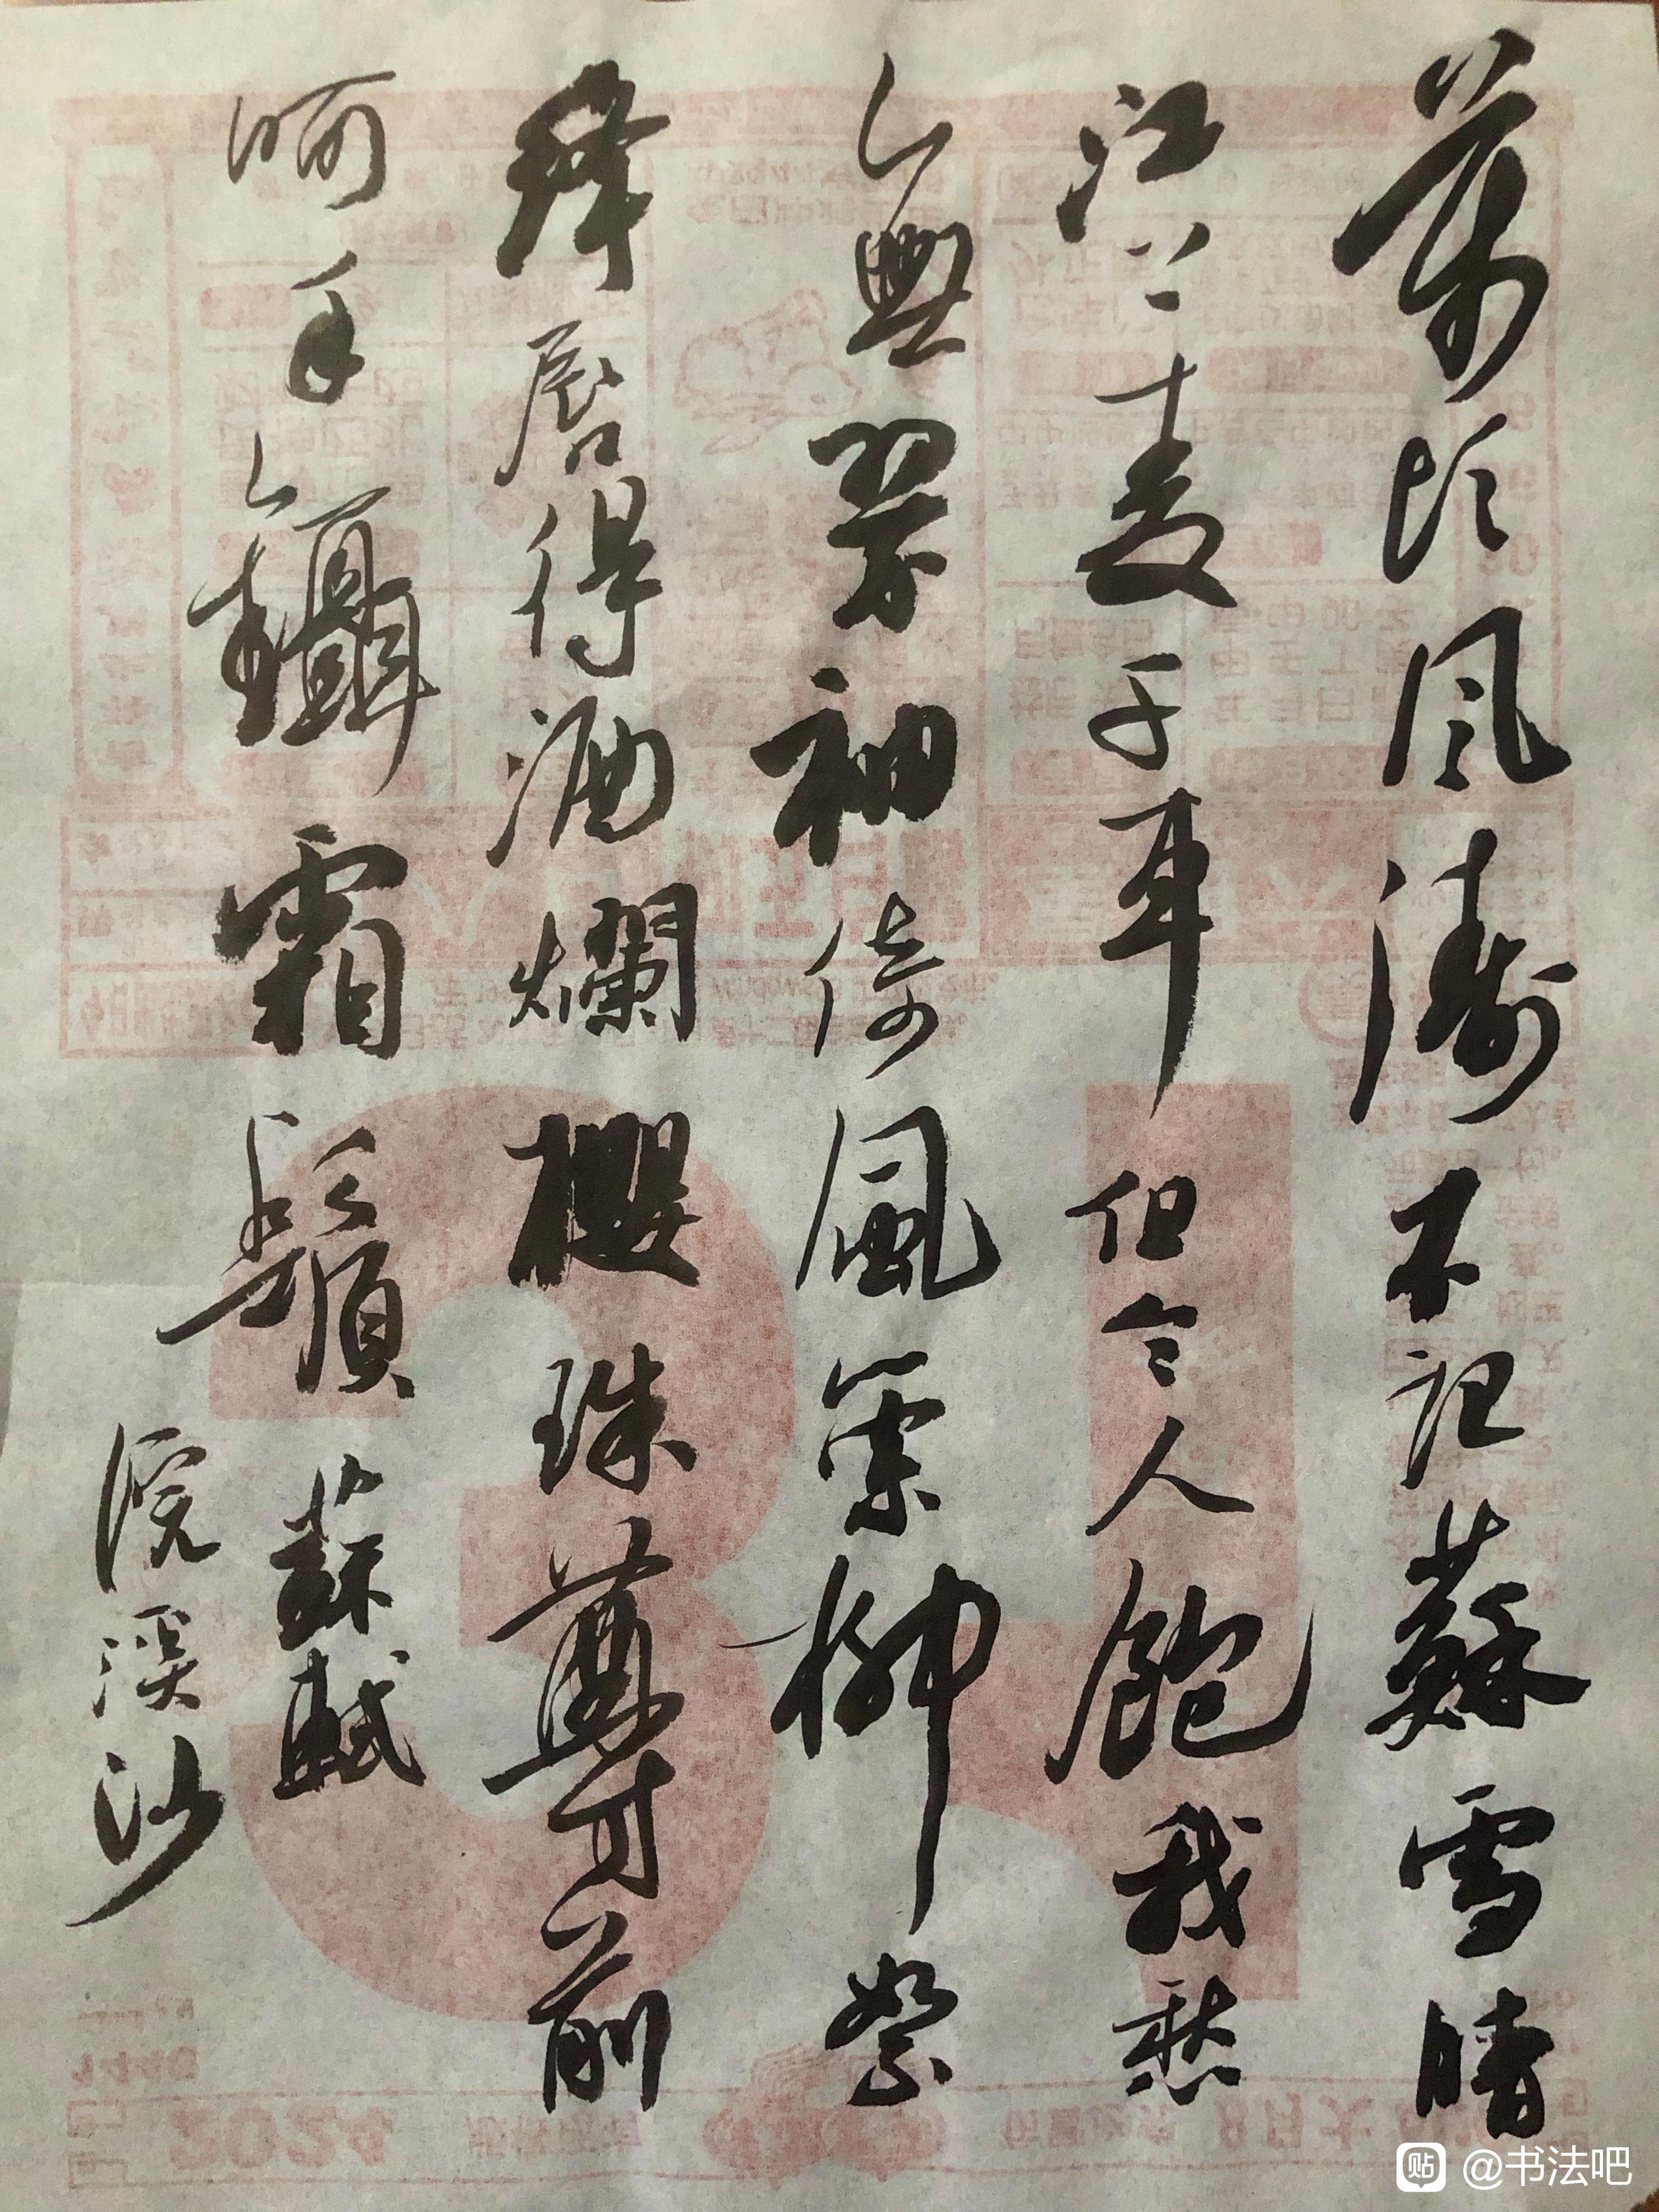 萬顷风濤不记蘇雪晴
江上麦千車但令人飽我愁
無翠袖倚風縈柳絮
絳唇得酒爛櫻珠尊前
呵手鑷霜鬚
蘇軾
浣溪沙
贴 @书法吧